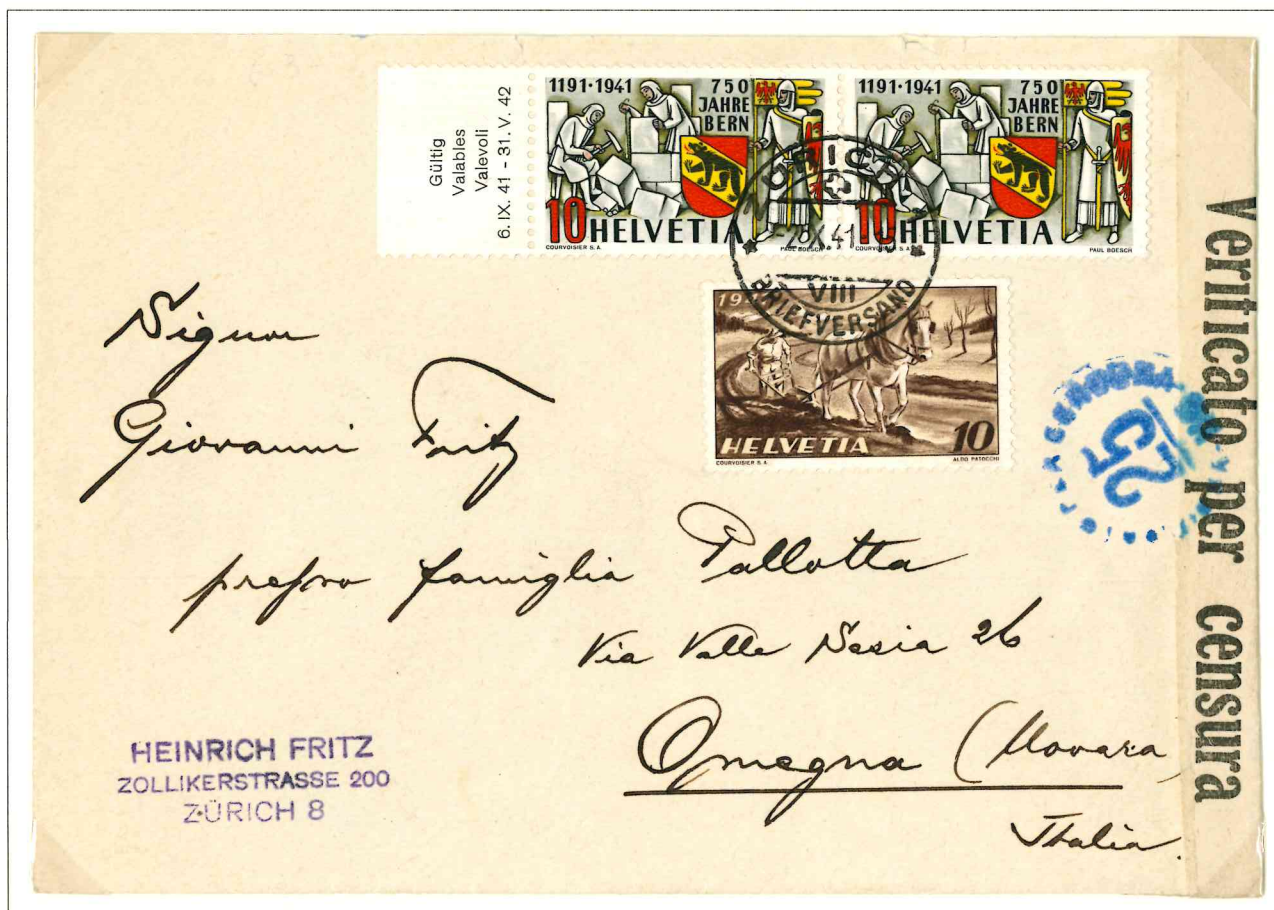 Gültig
Valables
Valevoli
6. IX. 41 - 31. V. 42
1191·1941 750
JAHRE
BERN
10 HELVETIA
COURVOISIER S. A. PAUL BOESCH
1191·1941 750
JAHRE
BERN
10 HELVETIA
COURVOISIER S. A. PAUL BOESCH
VIII
BRIEFVERSAND
HELVETIA 10
COURVOISIER S. A. ALDO PATOCCHI
Signor
Giovanni Fritz
presso famiglia Pallotta
Via Valle Sesia 26
Omegna (Novara
Italia.
HEINRICH FRITZ
ZOLLIKERSTRASSE 200
ZÜRICH 8
25
Verificato per censura